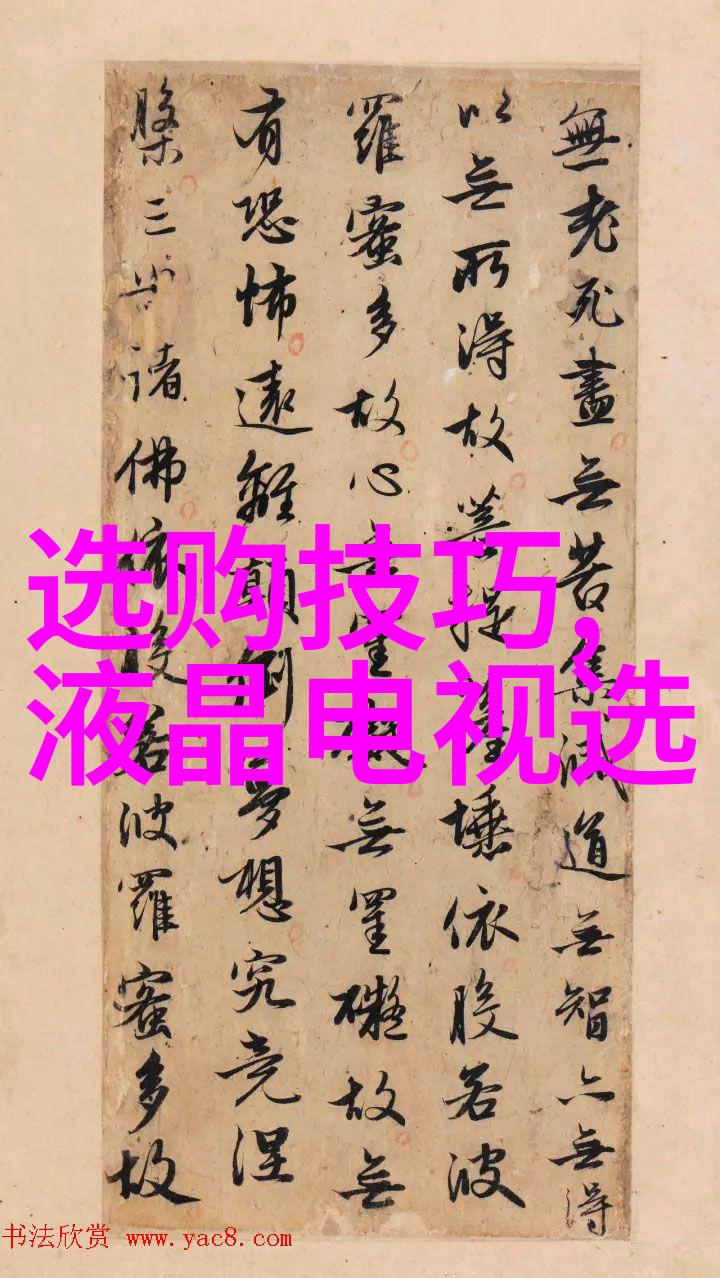 無老死盡無苦集滅道無智亦無得
以無所得故菩提薩埵依般若波
羅蜜多故心無罣礙無罣礙故無
有恐怖遠離顛倒夢想究竟涅
槃三世諸佛依般若波羅蜜多故
选购技巧,
液晶电视选
书法欣赏 www.yac8.com